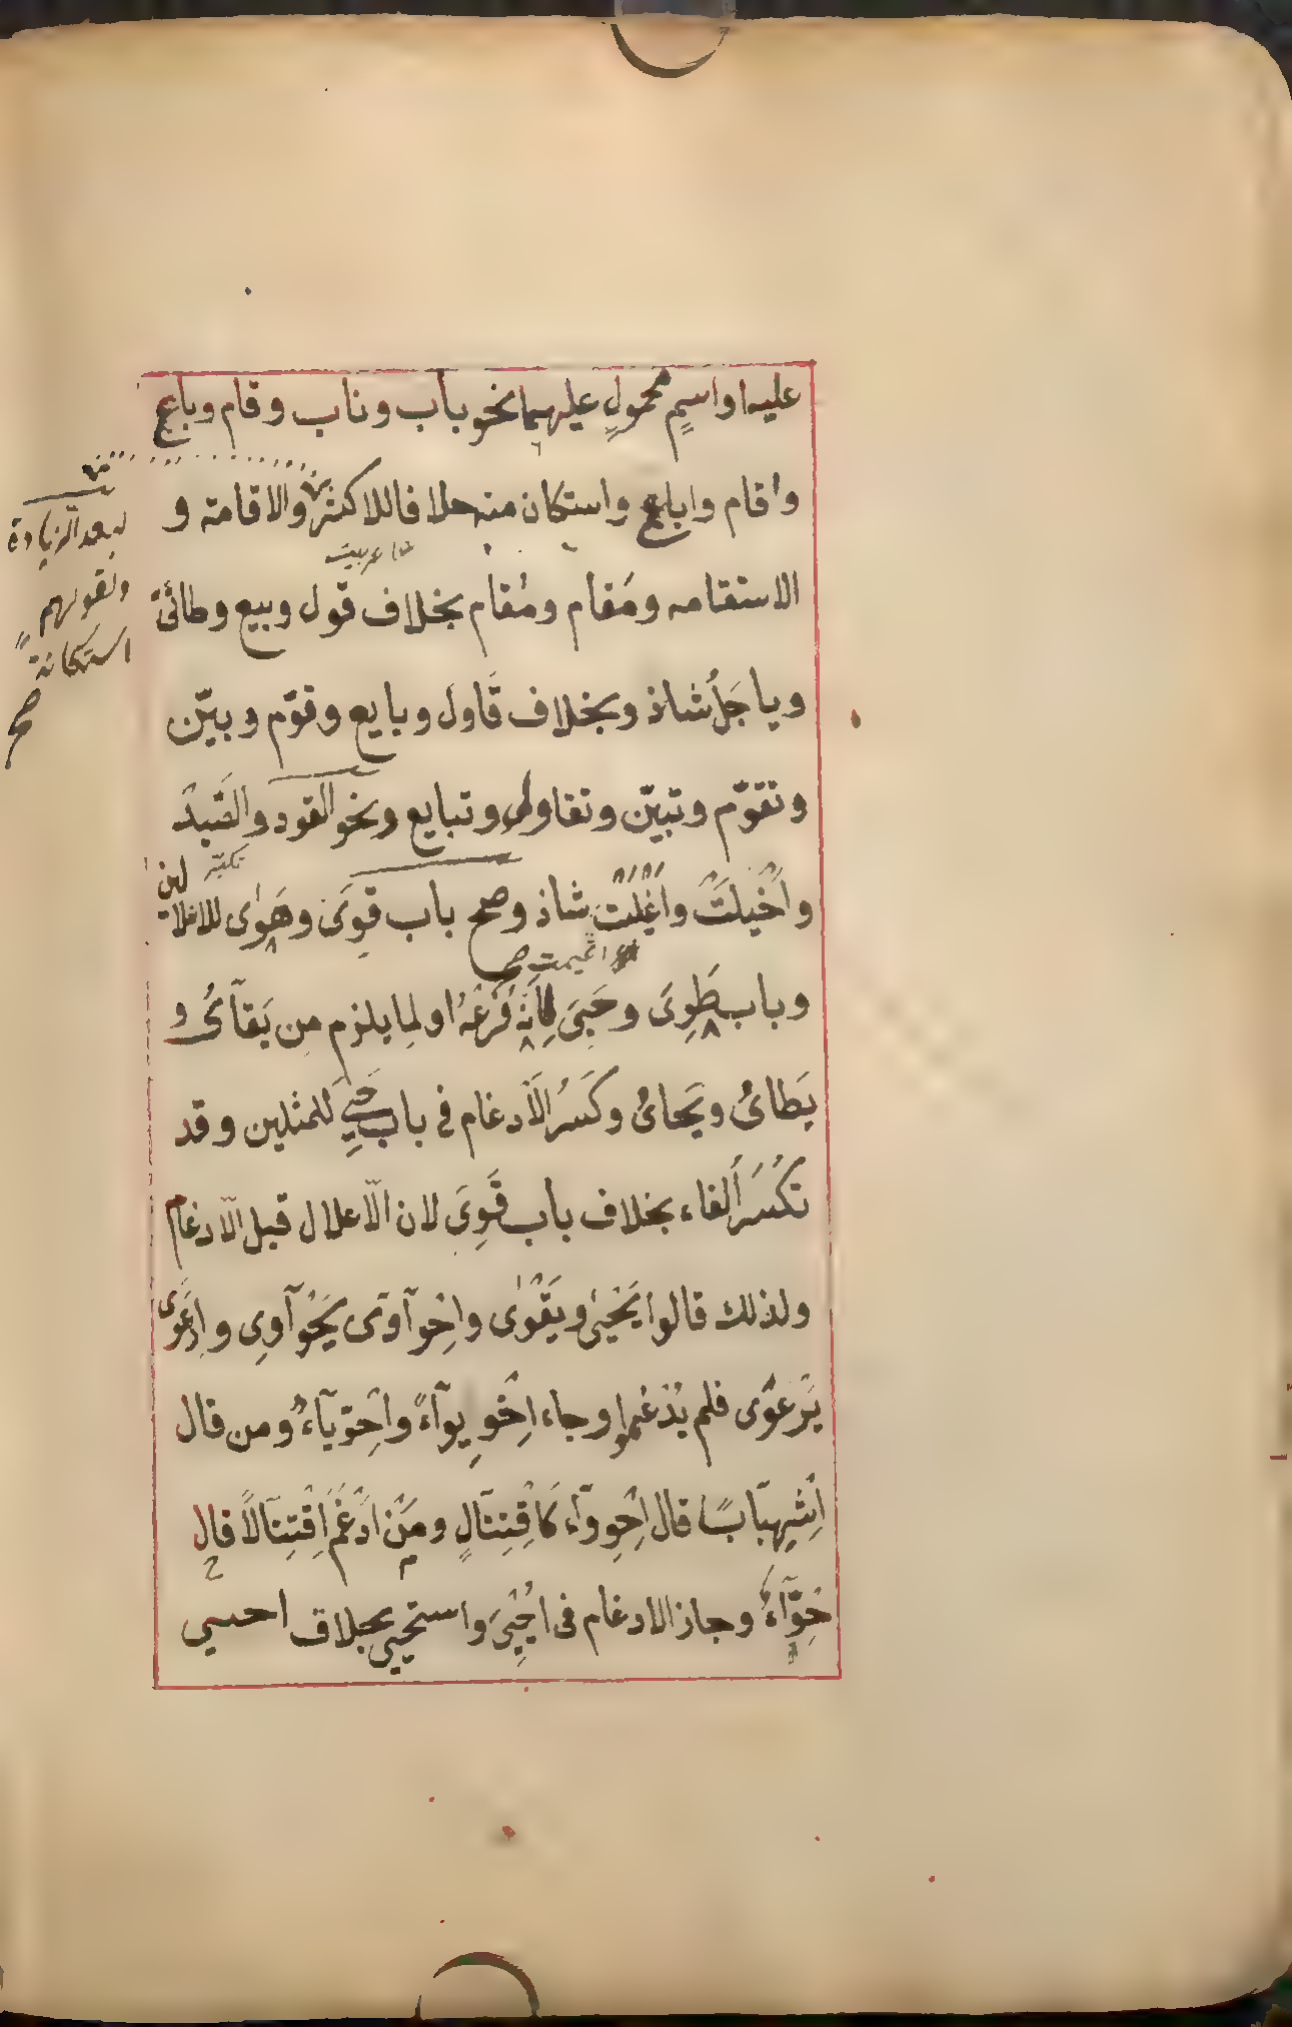 عليه او اسمٍ محمولٍ عليهما نحو باب وناب وقام وباع
واقام واباع واستكان منه خلافا للاكثر والاقامة و
لبعد الزيادة
ولقولهم
استكانة
صح
الاستقامه ومَقام ومُقام بخلاف قول وبيع وطائىّ
وياجَلُ شاذ وبخلاف قَاولَ وبايع وقوّم وبيّن
وتقوّم وتبيّن وتقاول وتبايع ونحو القود والصَّيد
واَخْيلَتْ واَغْيَلَتْ شاذ وصح باب قوِىَ وهَوٰى للاعلا لين
اغيمت صح
وباب طَوِىَ وحَيِىَ لِانّه فَرْعُهُ او لِما يلزم مِن يَقآىُ و
يَطاىُ ويَحاىُ وكَسرُ الاَدغام فى باب حَيِىَ للمثلين وقد
تكسَرُ الفاء بخلاف باب قَوِىَ لان الاّعلال قبل الاّدغام
ولذلك قالوا يَحْيىٰ ويَقْوٰى واحْوآوَى يَحْوآوِى وارعَوى
يَرْعوِى فلم يُدْغموا وجاء اِحْوِيوآءً واحْوِيّآءُ ومن قال
اِشْهِبَابًا قال اِحْوِوآء كَاقْتِتَالٍ ومَنْ اَدْغَمَ اِقْتِتَالاً قال
حِوّآءُ وجاز الادغام فى اُحْيِىَ واستحيى بخلاف احيى